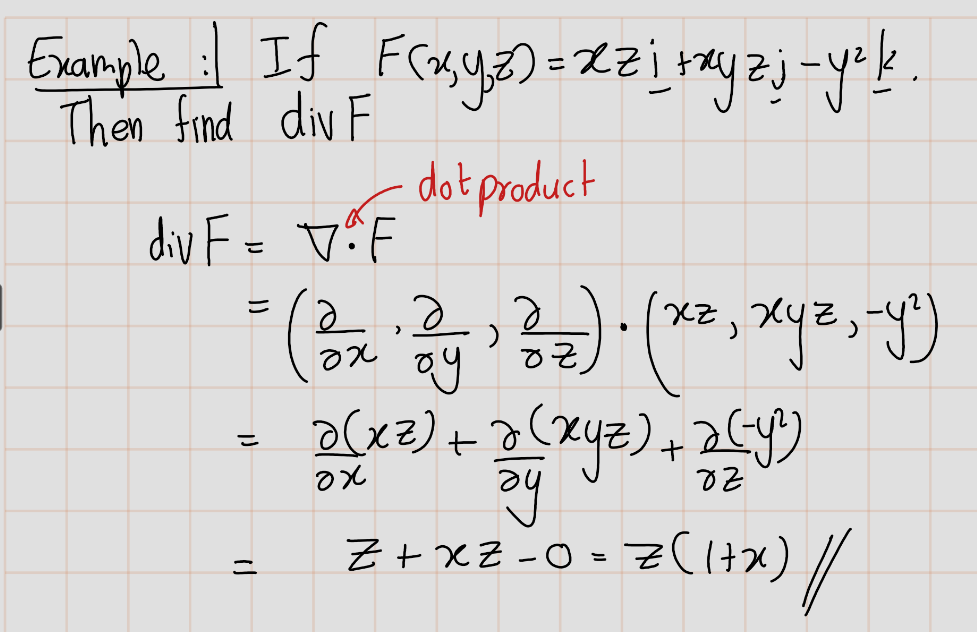 Example : If F(x,y,z) = xz i + xyz j - y² k.
Then find div F
dot product
div F = ∇ · F
= (∂/∂x, ∂/∂y, ∂/∂z) · (xz, xyz, -y²)
= ∂(xz)/∂x + ∂(xyz)/∂y + ∂(-y²)/∂z
= z + xz - 0 = z(1+x) //